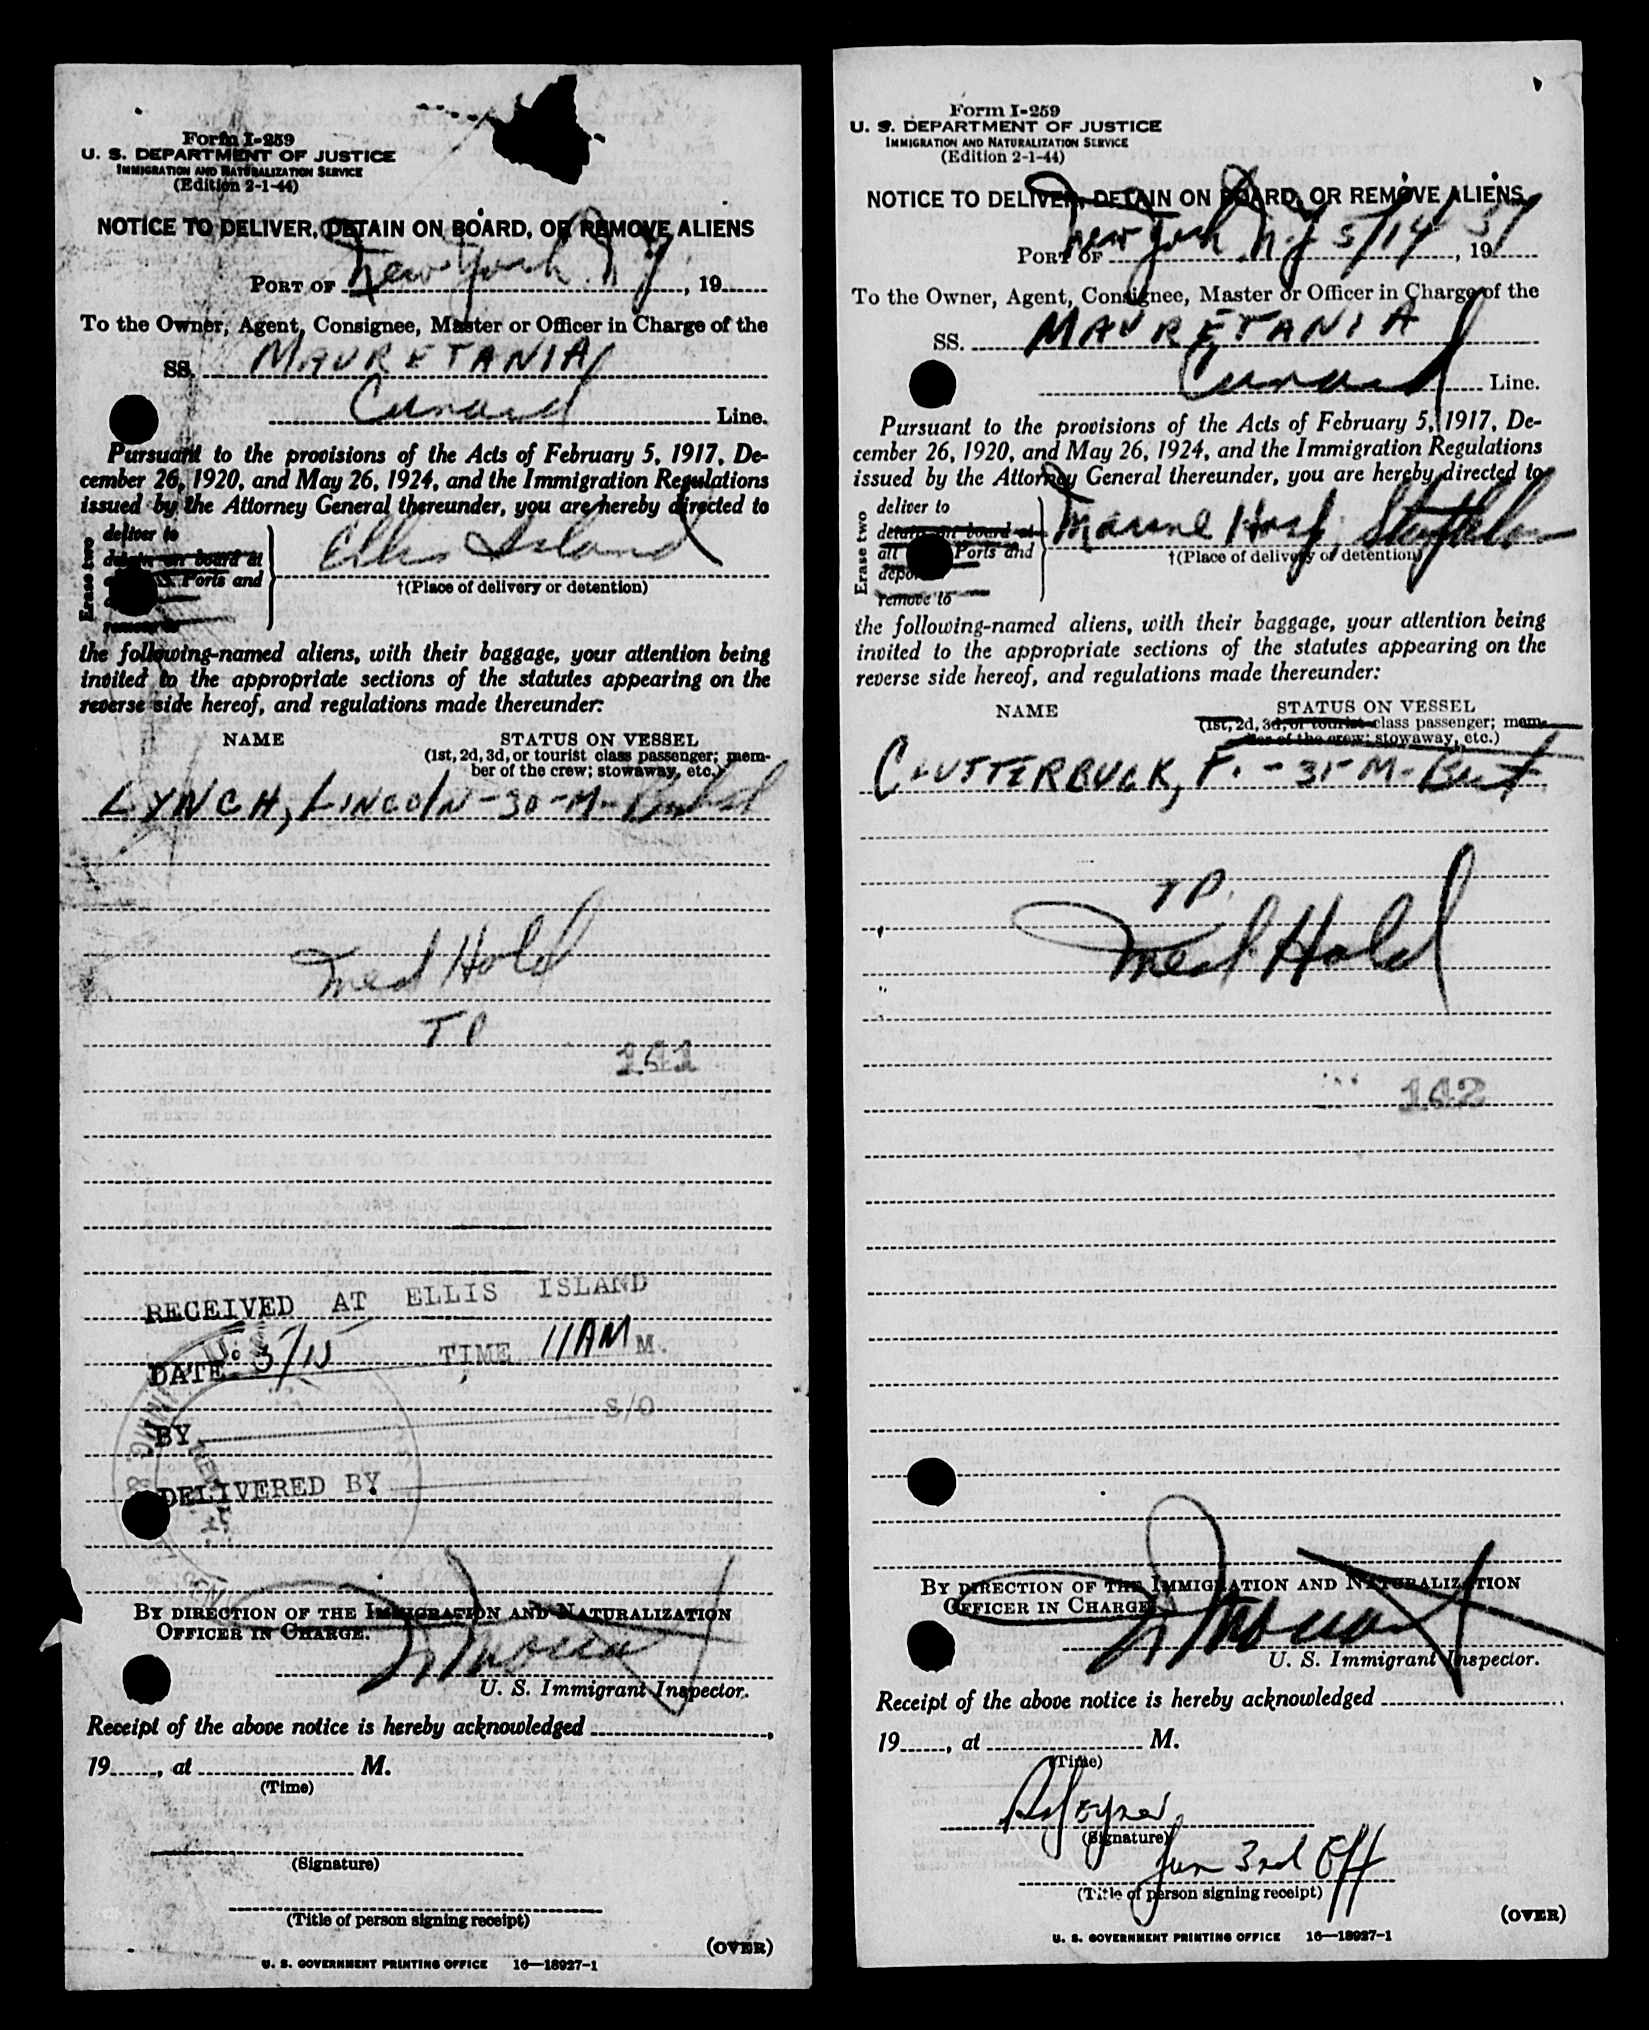 Form I-259
U. S. DEPARTMENT OF JUSTICE
IMMIGRATION AND NATURALIZATION SERVICE
(Edition 2-1-44)
NOTICE TO DELIVER, DETAIN ON BOARD, OR REMOVE ALIENS
PORT OF New York N Y, 19
To the Owner, Agent, Consignee, Master or Officer in Charge of the
SS. MAURETANIA
Cunard Line.
Pursuant to the provisions of the Acts of February 5, 1917, De-
cember 26, 1920, and May 26, 1924, and the Immigration Regulations
issued by the Attorney General thereunder, you are hereby directed to
Erase two
deliver to
detain on board at
Ports and
remove to
Ellis Island
†(Place of delivery or detention)
the following-named aliens, with their baggage, your attention being
invited to the appropriate sections of the statutes appearing on the
reverse side hereof, and regulations made thereunder:
NAME STATUS ON VESSEL
(1st, 2d, 3d, or tourist class passenger; mem-
ber of the crew; stowaway, etc.)
LYNCH, LINCOLN - 30 - M -
Med Hold
TP
141
RECEIVED AT ELLIS ISLAND
DATE: 5/15 TIME 11AM M.
BY S/O
DELIVERED BY
BY DIRECTION OF THE IMMIGRATION AND NATURALIZATION
OFFICER IN CHARGE.
U. S. Immigrant Inspector.
Receipt of the above notice is hereby acknowledged ,
19 , at M.
(Time)
(Signature)
(Title of person signing receipt)
(OVER)
U. S. GOVERNMENT PRINTING OFFICE 16—18927-1
Form I-259
U. S. DEPARTMENT OF JUSTICE
IMMIGRATION AND NATURALIZATION SERVICE
(Edition 2-1-44)
NOTICE TO DELIVER, DETAIN ON BOARD, OR REMOVE ALIENS
PORT OF New York N.Y 5/14, 1951
To the Owner, Agent, Consignee, Master or Officer in Charge of the
SS. MAURETANIA
Cunard Line.
Pursuant to the provisions of the Acts of February 5, 1917, De-
cember 26, 1920, and May 26, 1924, and the Immigration Regulations
issued by the Attorney General thereunder, you are hereby directed to
Erase two
deliver to
detain on board at
all Ports and
remove to
Marine Hosp Stapleton
†(Place of delivery or detention)
the following-named aliens, with their baggage, your attention being
invited to the appropriate sections of the statutes appearing on the
reverse side hereof, and regulations made thereunder:
NAME STATUS ON VESSEL
(1st, 2d, 3d, or tourist class passenger; mem-
ber of the crew; stowaway, etc.)
CLUTTERBUCK, F. - 31 - M - Brit
TP.
Med Hold
142
BY DIRECTION OF THE IMMIGRATION AND NATURALIZATION
OFFICER IN CHARGE.
U. S. Immigrant Inspector.
Receipt of the above notice is hereby acknowledged
19 , at M.
(Time)
(Signature)
Jun 3rd Off
(Title of person signing receipt)
(OVER)
U. S. GOVERNMENT PRINTING OFFICE 16—18927-1